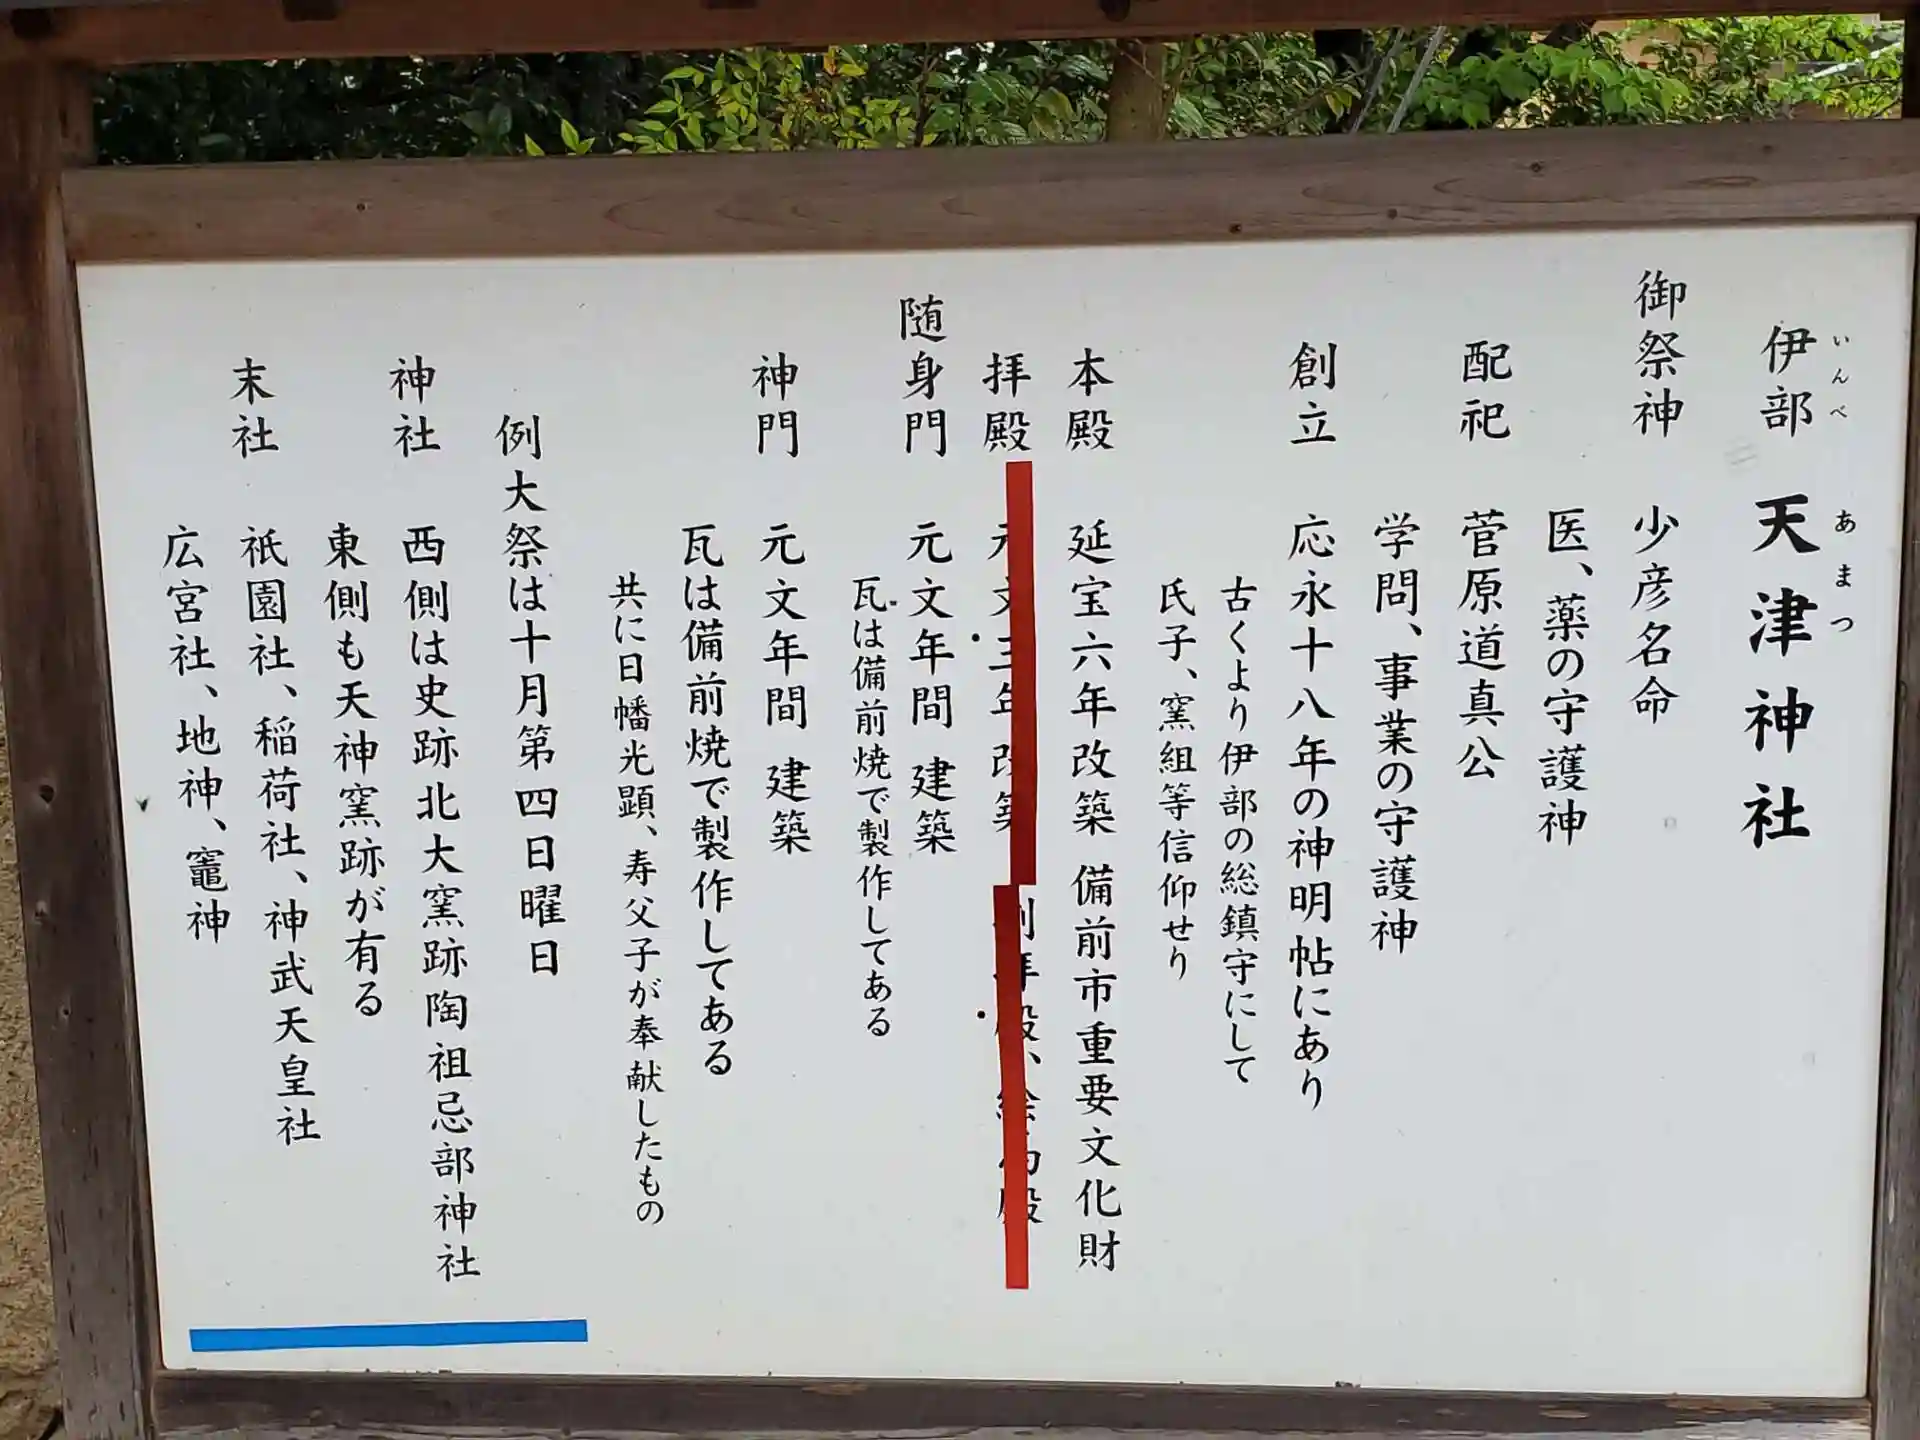 伊部 天津神社
いんべ あまつ
御祭神 少彦名命
医、薬の守護神
配祀 菅原道真公
学問、事業の守護神
創立 応永十八年の神明帖にあり
古くより伊部の総鎮守にして
氏子、窯組等信仰せり
本殿 延宝六年改築 備前市重要文化財
拝殿 元文三年改築 拝殿、絵馬殿
随身門 元文年間 建築
瓦は備前焼で製作してある
神門 元文年間 建築
瓦は備前焼で製作してある
共に日幡光顕、寿父子が奉献したもの
例大祭は十月第四日曜日
神社 西側は史跡北大窯跡陶祖忌部神社
東側も天神窯跡が有る
末社 祇園社、稲荷社、神武天皇社
広宮社、地神、竈神